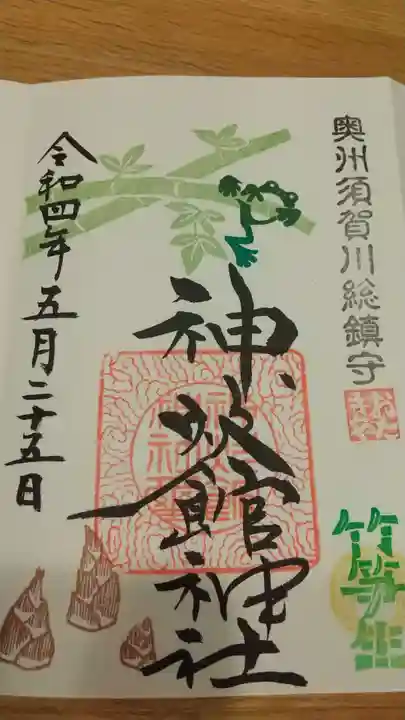 奥州須賀川総鎮守
神炊館神社
令和四年五月二十五日
竹笋生